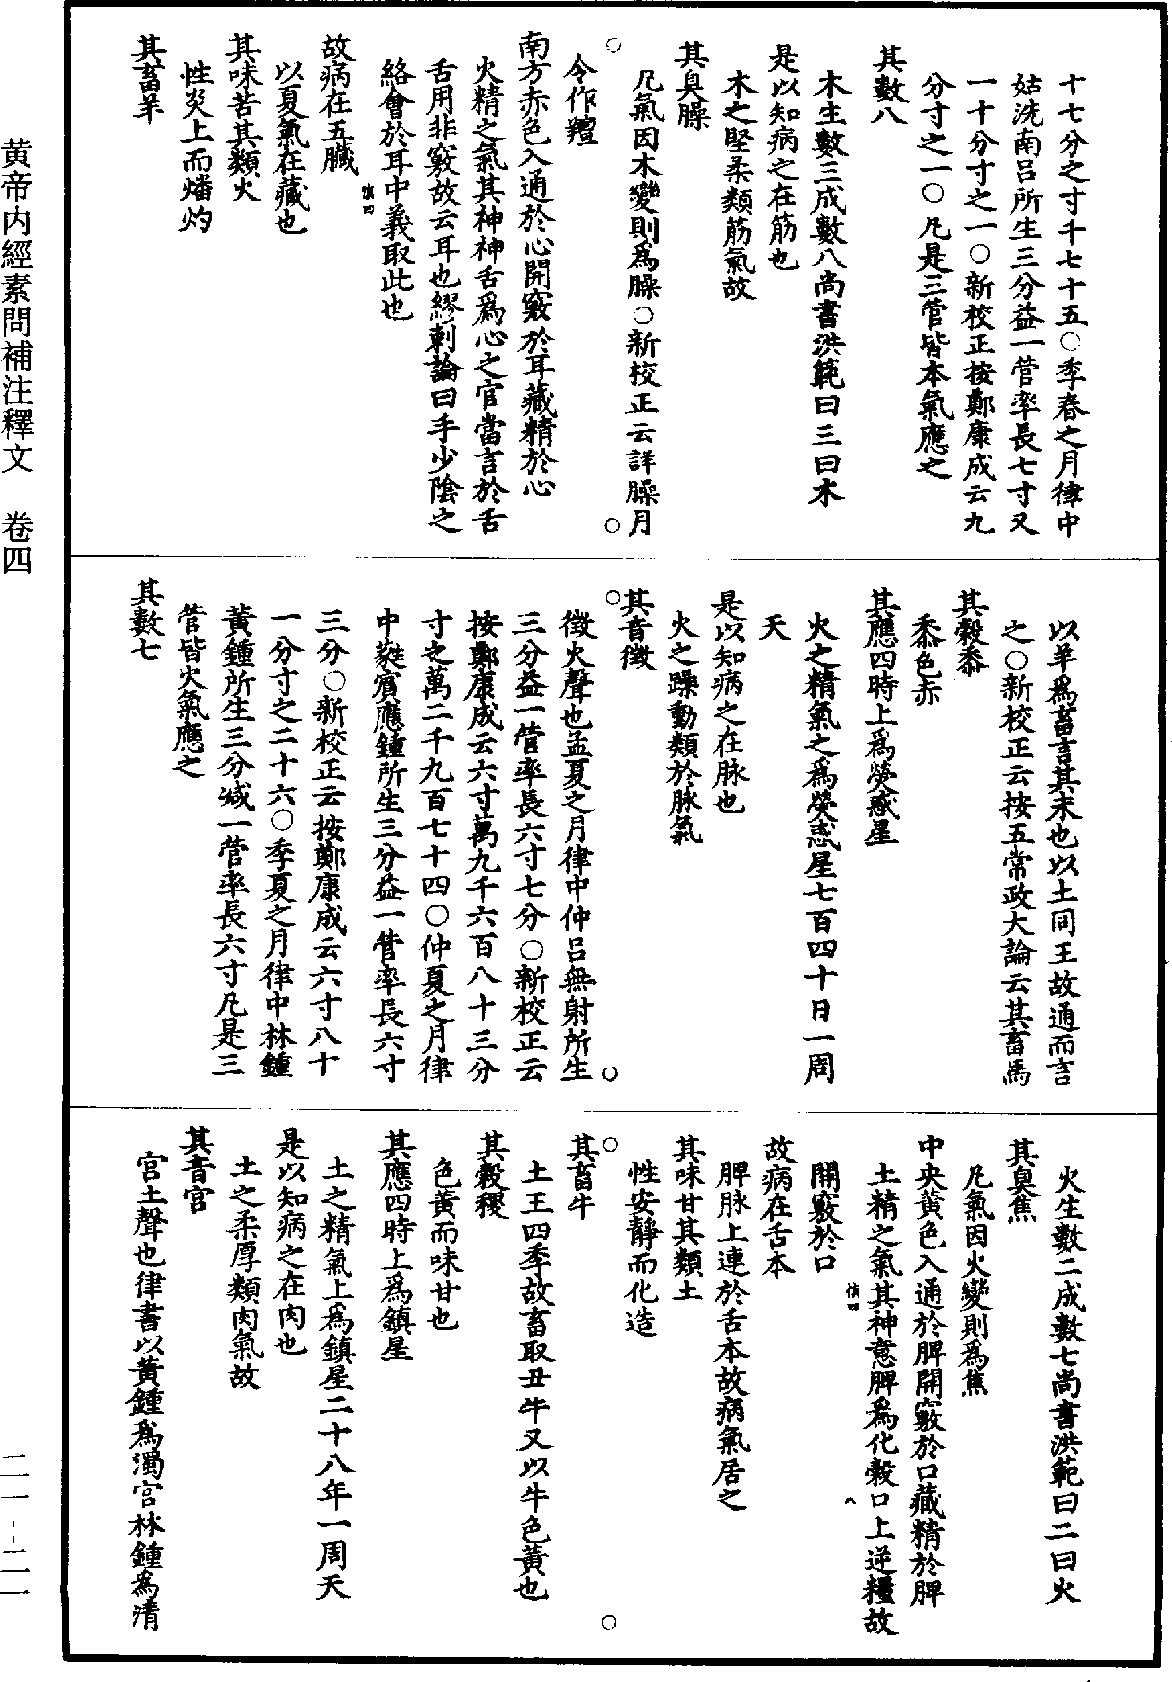 十七分之寸千七十五○季春之月律中
姑洗南呂所生三分益一管率長七寸又
一十分寸之一○新校正按鄭康成云九
分寸之一○凡是三管皆本氣應之
其數八
木生數三成數八尚書洪範曰三曰木
是以知病之在筋也
木之堅柔類筋氣故
其臭臊
凡氣因木變則爲臊○新校正云詳臊月
令作羶
南方赤色入通於心開竅於耳藏精於心
火精之氣其神神舌爲心之官當言於舌
舌用非竅故云耳也繆刺論曰手少陰之
絡會於耳中義取此也
慎四
故病在五臟
以夏氣在藏也
其味苦其類火
性炎上而燔灼
其畜羊
以羊爲畜言其未也以土同王故通而言
之○新校正云按五常政大論云其畜馬
其穀黍
黍色赤
其應四時上爲熒惑星
火之精氣之爲熒惑星七百四十日一周
天
是以知病之在脉也
火之躁動類於脉氣
其音徵
徵火聲也孟夏之月律中仲呂無射所生
三分益一管率長六寸七分○新校正云
按鄭康成云六寸萬九千六百八十三分
寸之萬二千九百七十四○仲夏之月律
中蕤賓應鍾所生三分益一管率長六寸
三分○新校正云按鄭康成云六寸八十
一分寸之二十六○季夏之月律中林鍾
黃鍾所生三分減一管率長六寸凡是三
管皆火氣應之
其數七
火生數二成數七尚書洪範曰二曰火
其臭焦
凡氣因火變則爲焦
中央黃色入通於脾開竅於口藏精於脾
土精之氣其神意脾爲化穀口上逆糧故
開竅於口
慎四
八
故病在舌本
脾脉上連於舌本故病氣居之
其味甘其類土
性安靜而化造
其畜牛
土王四季故畜取丑牛又以牛色黃也
其穀稷
色黃而味甘也
其應四時上爲鎮星
土之精氣上爲鎮星二十八年一周天
是以知病之在肉也
土之柔厚類肉氣故
其音宮
宮土聲也律書以黃鍾爲濁宮林鍾爲清
黃帝內經素問補注釋文 卷四
二一-二一